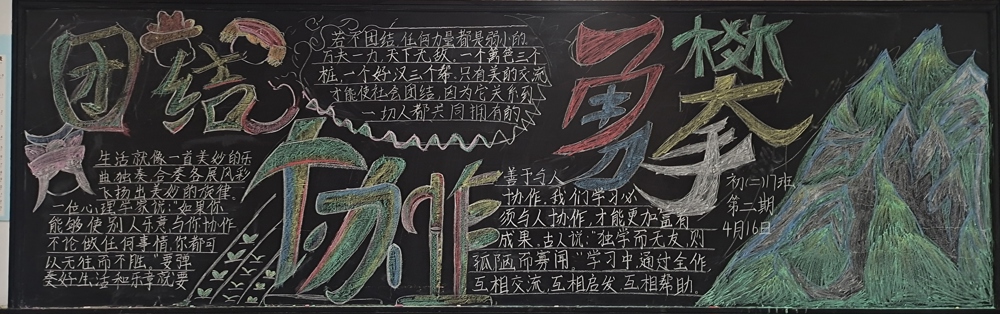 团结
协作
勇攀
若不团结,任何力量都是弱小的.
万夫一力,天下无敌.一个篱笆三个
桩,一个好汉三个帮.只有美的交流
才能使社会团结,因为它关系到
一切人都共同拥有的.
生活就像一首美妙的乐
曲独奏、合奏各展风彩
飞扬出美妙的旋律。
一位心理学家说:“如果你
能够使别人乐意与你协作
不论做任何事情,你都可
以无往而不胜。”要弹
奏好生活和乐章就要
善于与人
协作.我们学习必
须与人协作,才能更加富有
成果,古人说:“独学而无友,则
孤陋而寡闻.”学习中,通过合作,
互相交流,互相启发,互相帮助.
初(二)17班
第二期
4月16日